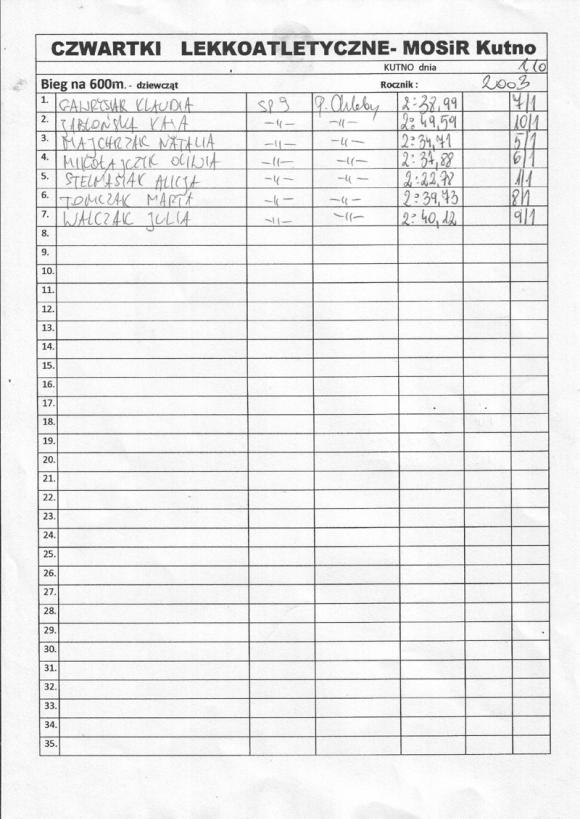 CZWARTKI LEKKOATLETYCZNE- MOSiR Kutno
KUTNO dnia 1/0
Bieg na 600m. - dziewcząt Rocznik : 2003
1. GAWRYSIAK KLAUDIA SP 9 P. Chleby 2:38,99 7/1
2. JABŁOŃSKA KAJA -//- -//- 2:49,59 10/1
3. MAJCHRZAK NATALIA -//- -//- 2:34,71 5/1
4. MIKOŁAJCZYK OLIWIA -//- -//- 2:37,88 6/1
5. STELMASIAK ALICJA -//- -//- 2:22,78 1/1
6. TOMCZAK MARTA -//- -//- 2:39,73 8/1
7. WALCZAK JULIA -//- -//- 2:40,12 9/1
8.
9.
10.
11.
12.
13.
14.
15.
16.
17.
18.
19.
20.
21.
22.
23.
24.
25.
26.
27.
28.
29.
30.
31.
32.
33.
34.
35.